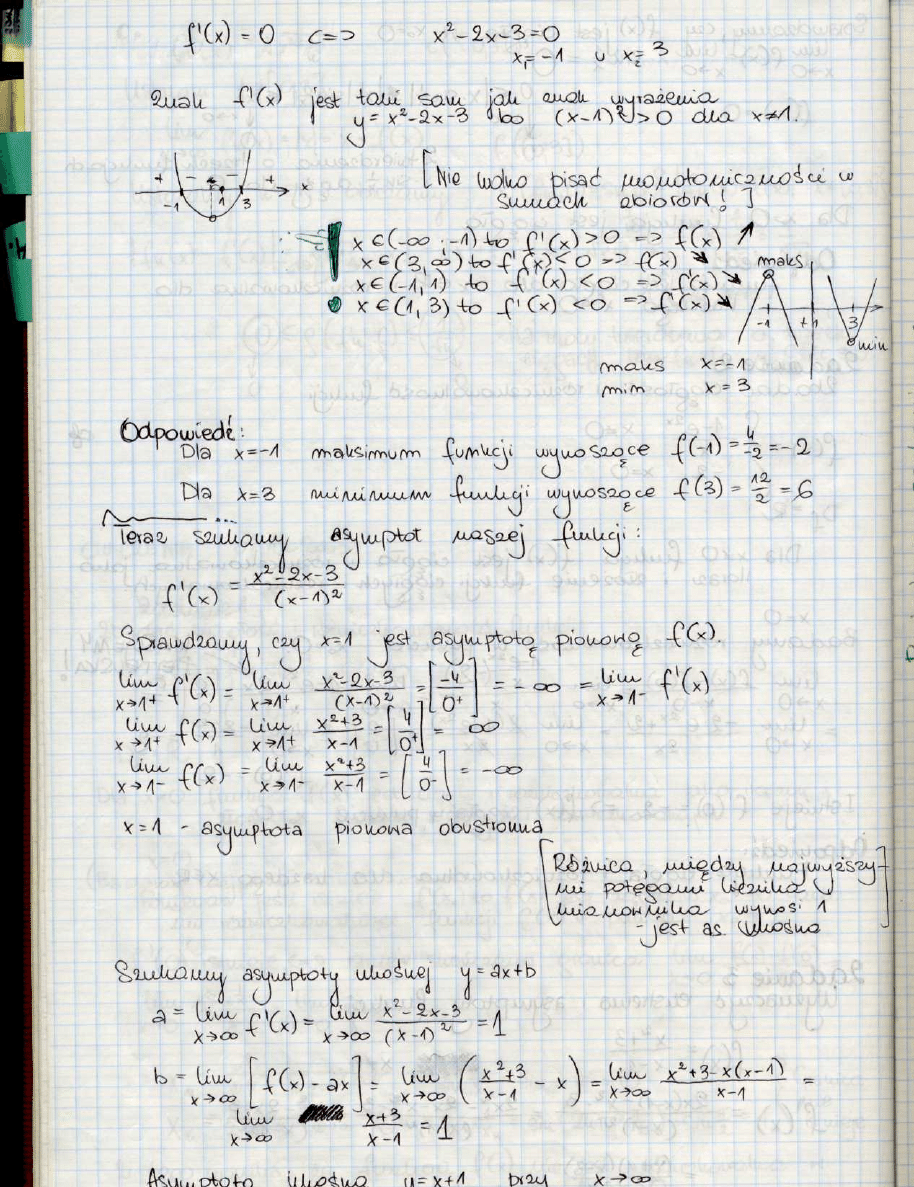 f'(x) = 0 <=> x²-2x-3=0
x₁=-1 ∪ x₂=3
Znak f'(x) jest taki sam jak znak wyrażenia
y=x²-2x-3 bo (x-1)²>0 dla x≠1.
+ - - + x
-1 1 3
[Nie wolno pisać monotoniczności w
sumach zbiorów!]
x∈(-∞;-1) to f'(x)>0 => f(x) ↗
x∈(3,∞) to f'(x)<0 => f(x) ↘
x∈(-1,1) to f'(x)<0 => f'(x) ↘
x∈(1,3) to f'(x)<0 => f'(x) ↘
maks
-1 +1 3
min
maks x=-1
min x=3
Odpowiedź:
Dla x=-1 maksimum funkcji wynoszące f(-1)=4/-2=-2
Dla x=3 minimum funkcji wynoszące f(3)=12/2=6
Teraz szukamy asymptot naszej funkcji:
f'(x) = x²-2x-3/(x-1)²
Sprawdzamy, czy x=1 jest asymptotą pionową f(x).
lim x→1⁺ f'(x) = lim x→1⁺ x²-2x-3/(x-1)² = [-4/0⁺] = -∞ = lim x→1⁻ f'(x)
lim x→1⁺ f(x) = lim x→1⁺ x²+3/x-1 = [4/0⁺] = ∞
lim x→1⁻ f(x) = lim x→1⁻ x²+3/x-1 = [4/0⁻] = -∞
x=1 - asymptota pionowa obustronna
[Różnica, między najwyższy-
mi potęgami licznika i
mianownika wynosi 1
- jest as ukośna]
Szukamy asymptoty ukośnej y=ax+b
a = lim x→∞ f'(x) = lim x→∞ x²-2x-3/(x-1)² = 1
b = lim x→∞ [f(x)-ax] = lim x→∞ (x²+3/x-1 - x) = lim x→∞ x²+3-x(x-1)/x-1 =
lim x→∞ x+3/x-1 = 1
Asymptota ukośna y=x+1 przy x→∞